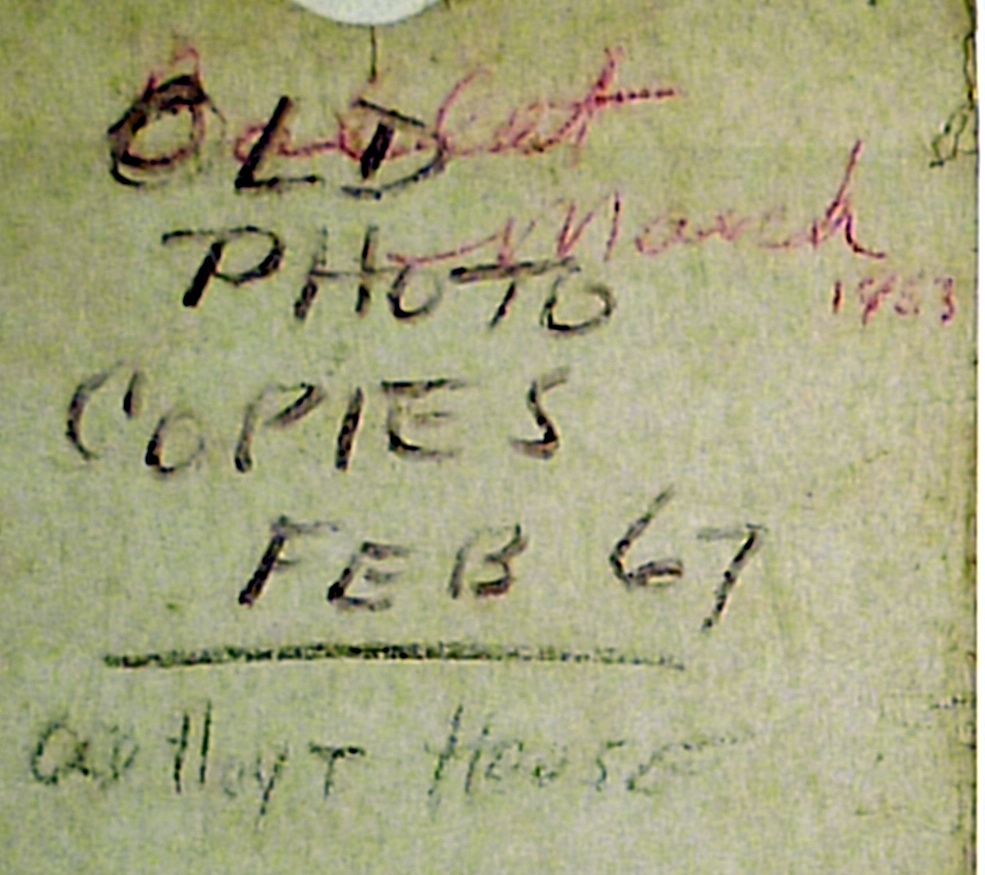 OLD
March
PHOTO
1953
COPIES
FEB 67
Old Hoyt House